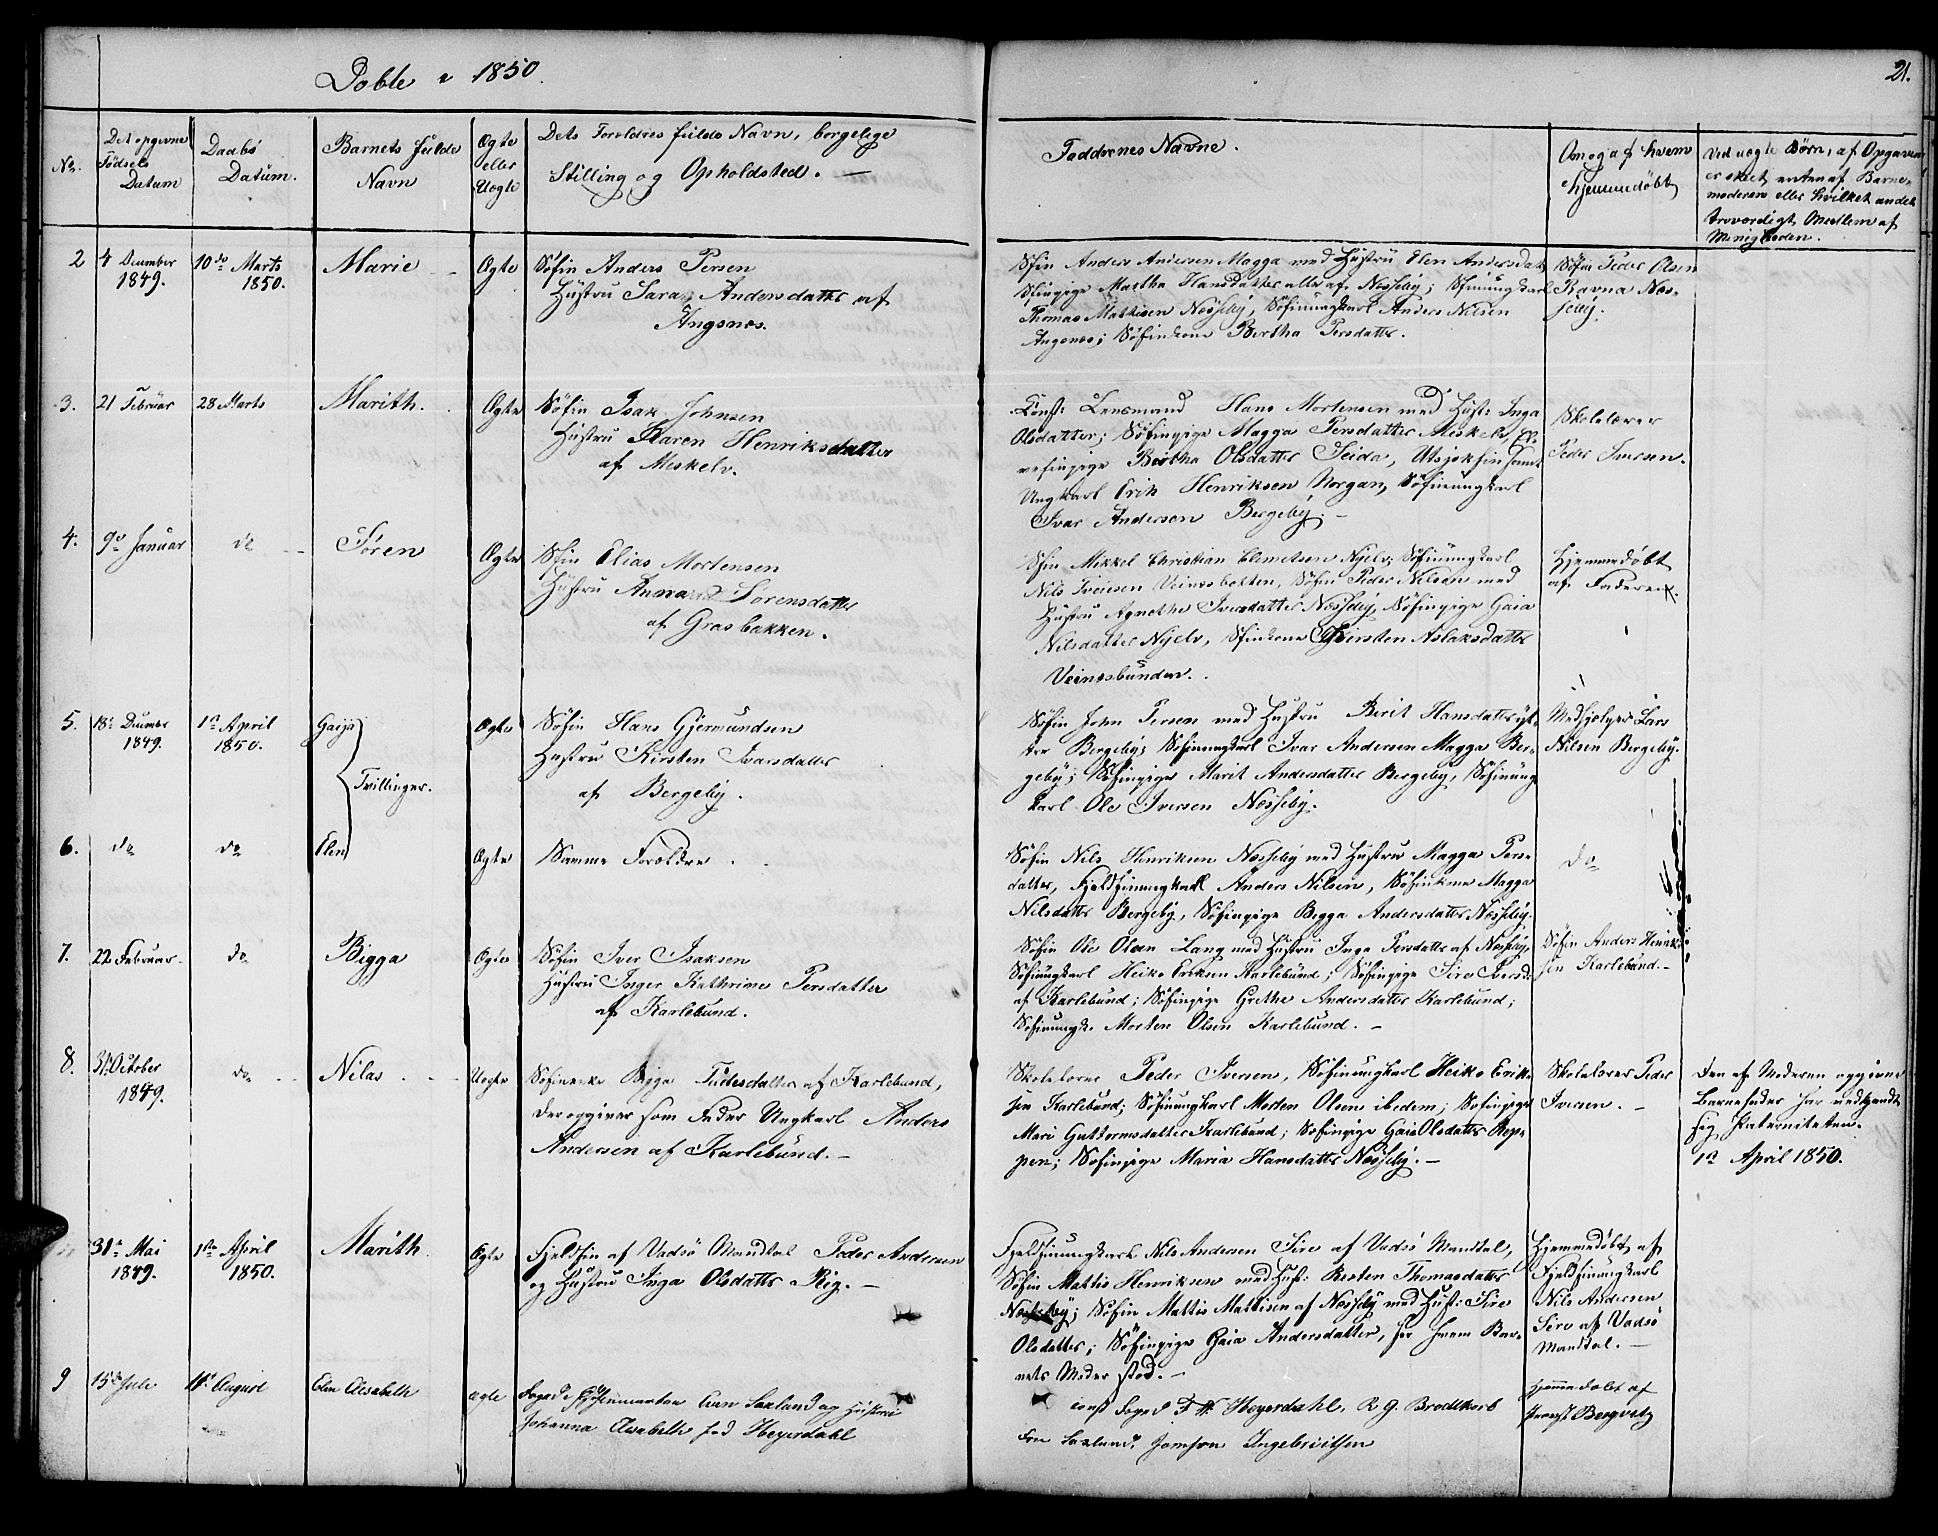 Døbte i 1850.
21.
No.
Det opgivne Fødsels Datum
Daabs Datum.
Barnets fulde Navn
Ægte eller Uægte
Dets Forældres fulde Navn, borgelige Stilling og Opholdsted. —
Faddrenes Navne.
Om og af hvem hjemmedøbt
Ved uægte Børn, af Opgaven er skeet enten af Barnemoderen eller hvilket andet troværdigt Medlem af Menigheden.
2
4 December 1849.
10de Marts 1850.
Marie
Ægte
Søfin Anders Persen
Hustru Sara Andersdatter af
Angsnæs.
Sfin Anders Andersen Magga med Hustru Elen Andersdat
Sfinpige Martha Hansdatter alle af Næsseby; Sfinungkarl
Thomas Mathisen Næsseby, Søfinungkarl Anders Nilsen
Angsnæs; Søfinkone Bertha Persdatter.
Søfin Peder Olsen
Ravna Næs-
seby.
3.
21 Februar
28 Marts
Marith.
Ægte
Søfin Isak Johnsen
Hustru Karen Henriksdatter
af Meskelv.
Const. Lensmand Hans Mortensen med Hust: Inga
Olsdatter; Søfinpige Magga Persdatter Meskelv, El-
vefinpige Bertha Olsdatter Seida, Utsjokfin samt
Ungkarl Erik Henriksen Norgan, Søfinungkarl
Ivar Andersen Bergeby. —
Skolelærer
Peder Iversen.
4.
9de Januar
do
Søren
Ægte
Sfin Elias Mortensen
Hustru Anna Sørensdatter
af Græsbakken.
Sfin Mikkel Christian Clemetsen Nyelv; Søfinungkarl
Nils Iversen Veinesbotten, Søfin Peder Nilsen med
Hustru Agnethe Iversdatter Næsseby, Søfinpige Gaia
Nilsdatter Nyelv, Sfinkone Kirsten Aslaksdatter
Veinæsbunden.
Hjemmedøbt
af Faderen.
5.
18de December 1849.
1ste April 1850.
Gaija
Tvillinger.
Ægte
Søfin Hans Gjermundsen
Hustru Kirsten Ivarsdatter
af Bergeby.
Søfin John Persen med Hustru Berit Hansdatter
Bergeby; Søfinungkarl Ivar Andersen Magga Ber-
geby; Søfinpige Marit Andersdatter Bergeby, Søfinung
karl Ole Iversen Næsseby.
Medhjelper Lars
Nilsen Bergeby.
6.
do
do
Elen
Ægte
Samme Forældre.
Søfin Nils Henriksen Næsseby med Hustru Magga Pers-
datter, Fjeldfinungkarl Anders Nilsen, Søfinkone Magga
Nilsdatter Bergeby, Søfinpige Bigga Andersdatter Næsseby.
do
7.
22 Februar.
do
Bigga
Ægte
Søfin Iver Isaksen
Hustru Inger Kathrine Persdatter
af Karlebund.
Søfin Ole Olsen Lang med Hustru Inga Persdatter af Næsseby,
Søfinungkarl Heike Eriksen Karlebund; Søfinpige Sire Iversd:
af Karlebund; Søfinpige Grethe Andersdatter Karlebund;
Søfinungk. Morten Olsen Karlebund. —
Søfin Anders Henrik-
sen Karlebund. —
8.
31 October 1849.
do
Nilas
Uægte
Søfinenke Bigga Tudesdatter af Karlebund,
der opgiver som Fader Ungkarl Anders
Andersen af Karlebund. —
Skolelærer Peder Iversen, Søfinungkarl Heike Erik-
sen Karlebund; Søfinungkarl Morten Olsen ibedem; Søfinpige
Mari Guttormsdatter Karlebund; Søfinpige Gaia Olsdatter Rep-
pen; Søfinpige Maria Hansdatter Næsseby. —
Skolelærer Peder
Iversen. —
Den af Moderen opgivne
Barnefader har vedkjendt
sig Paterniteten.
1ste April 1850.
31te Mai 1849.
1ste April 1850.
Marith.
Ægte
Fjeldfin af Vadsø Mandtal Peder Andersen
og Hustru Inga Olsdatter Piig. —
Fjeldfinungkarl Nils Andersen Sire af Vadsø Mandtal,
Søfin Mattis Henriksen med Hust: Kirsten Thomasdatter
Næsseby; Søfin Mattis Mathisen af Næsseby med Hust: Sire
Olsdatter; Søfinpige Gaia Andersdatter, for hvem Bar-
nets Moder stod. —
Hjemmedøbt af
Fjeldfinungkarl
Nils Andersen
Sire af Vadsø
Mandtal. —
9
15de Juli
11te August
Elin Elisabeth
ægte
Foged i Østfinmarken Even Saxlund og Hustru
Johanna Elisabeth fød Heyerdahl
const Foged F. W. Heyerdahl, R G. Brodtkorb
Fru Saxlund, Jomfru Ingebrictsen
Hjemmedøbt af
Provst Bergvitz